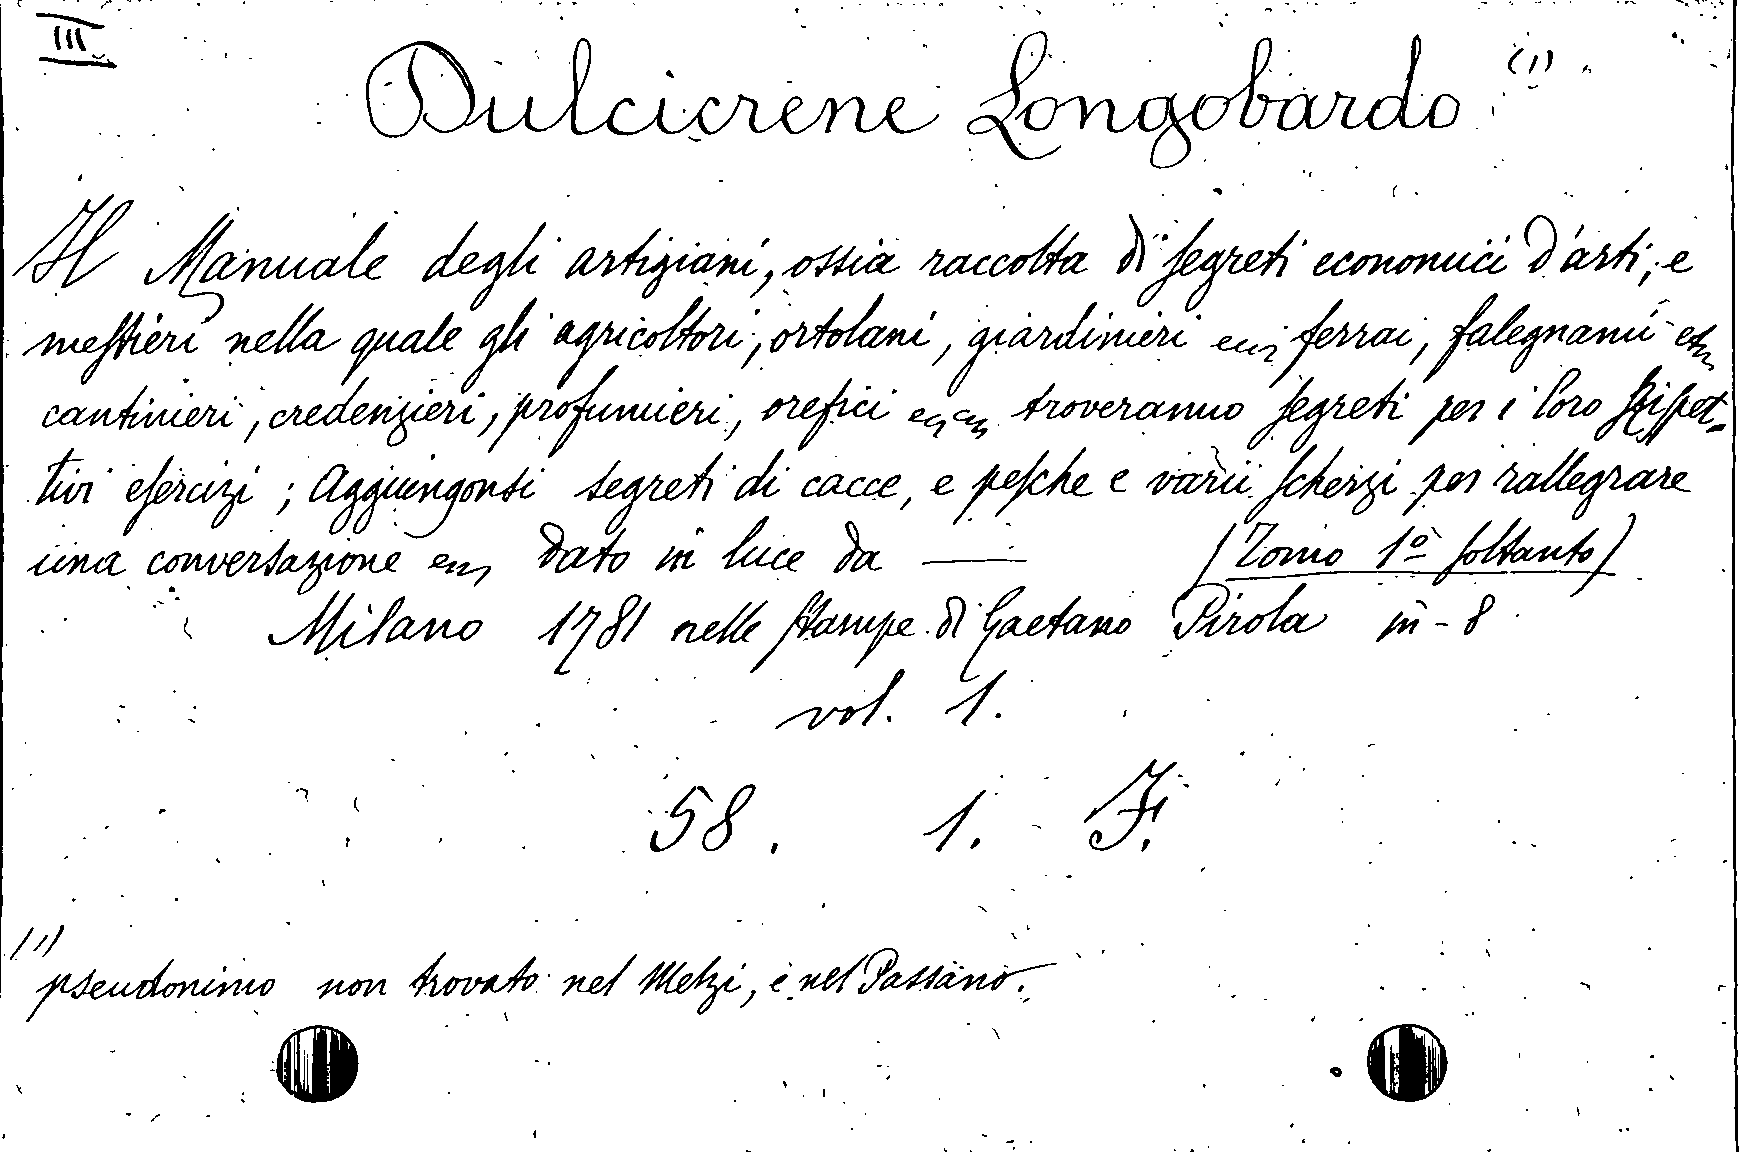 III
Dulcicrene Longobardo (1)
Il Manuale degli artigiani, ossia raccolta di segreti economici d'arti, e
mestieri nella quale gli agricoltori, ortolani, giardinieri ecc, ferrai, falegnami ecc
cantinieri, credenzieri, profumieri, orefici ecc, ecc, troveranno segreti per i loro rispet-
tivi esercizi; Aggiungonsi segreti di cacce, e pesche e varii scherzi per rallegrare
una conversazione ecc, dato in luce da — (Tomo 1º soltanto)
Milano 1781 nelle stampe di Gaetano Pirola in-8
vol. 1.
58. 1. F.
(1)
pseudonimo non trovato nel Melzi, e nel Passano.